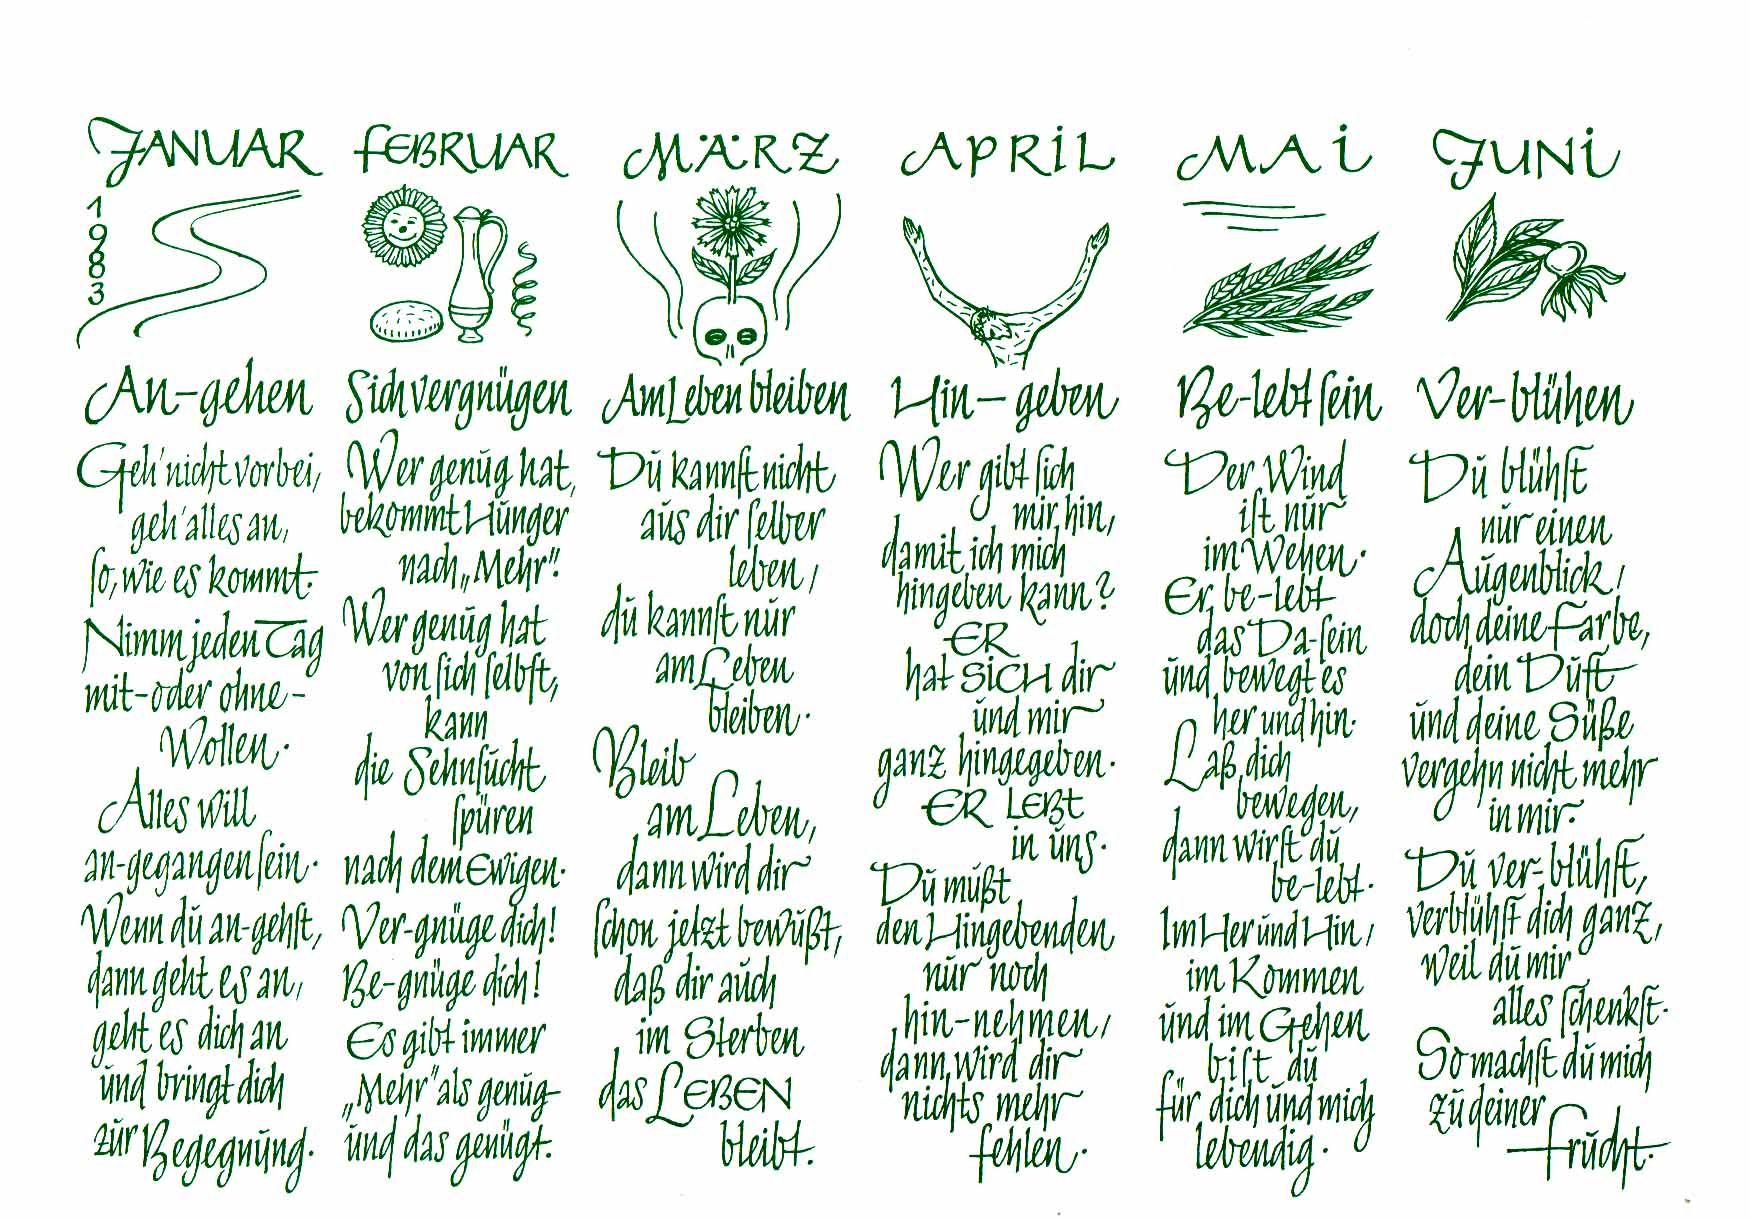 JANUAR
1
9
8
3
An-gehen
Geh' nicht vorbei,
geh' alles an,
so, wie es kommt.
Nimm jeden Tag
mit-oder ohne-
Wollen.
Alles will
an-gegangen sein.
Wenn du an-gehst,
dann geht es an,
geht es dich an
und bringt dich
zur Begegnung.
FEBRUAR
Sich vergnügen
Wer genug hat,
bekommt Hunger
nach „Mehr“!
Wer genug hat
von sich selbst,
kann
die Sehnsucht
spüren
nach dem Ewigen.
Ver-gnüge dich!
Be-gnüge dich!
Es gibt immer
„Mehr“ als genug-
und das genügt.
MÄRZ
Am Leben bleiben
Du kannst nicht
aus dir selber
leben,
du kannst nur
am Leben
bleiben.
Bleib
am Leben,
dann wird dir
schon jetzt bewußt,
daß dir auch
im Sterben
das LEBEN
bleibt.
APRIL
Hin-geben
Wer gibt sich
mir hin,
damit ich mich
hingeben kann?
ER
hat SICH dir
und mir
ganz hingegeben.
ER LEBT
in uns.
Du mußt
den Hingebenden
nur noch
hin-nehmen,
dann wird dir
nichts mehr
fehlen.
MAI
Be-lebt sein
Der Wind
ist nur
im Wehen.
Er be-lebt
das Da-sein
und bewegt es
her und hin.
Laß dich
bewegen,
dann wirst du
be-lebt.
Im Her und Hin,
im Kommen
und im Gehen
bist du
für dich und mich
lebendig.
JUNI
Ver-blühen
Du blühst
nur einen
Augenblick,
doch deine Farbe,
dein Duft
und deine Süße
vergehn nicht mehr
in mir.
Du ver-blühst,
verblühst dich ganz,
weil du mir
alles schenkst.
So machst du mich
zu deiner
Frucht.